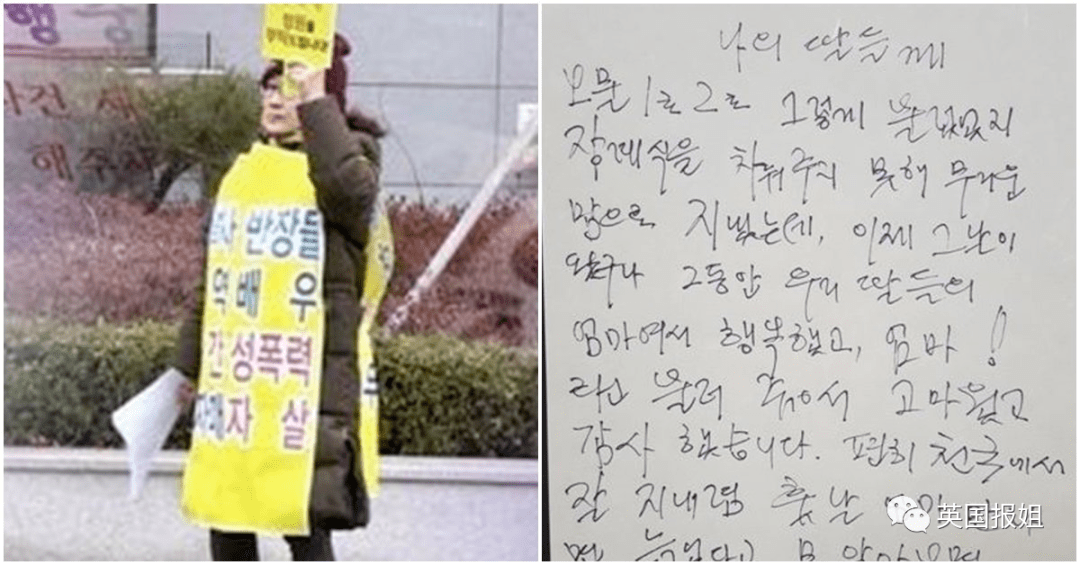 행
사건 재
해주
반장들
역 배 우
간 성폭력
자매 자 살
나의 딸들께
오물 1호 2호 그렇게 불렀었지
장례식을 치뤄주지 못해 무거운
맘으로 지냈는데, 이제 그날이
왔구나 그동안 우리 딸들의
엄마여서 행복했고, 엄마!
라고 불러 주어서 고마웠고
감사 했습니다. 편히 천국에서
잘 지내렴 훗날
英国报姐